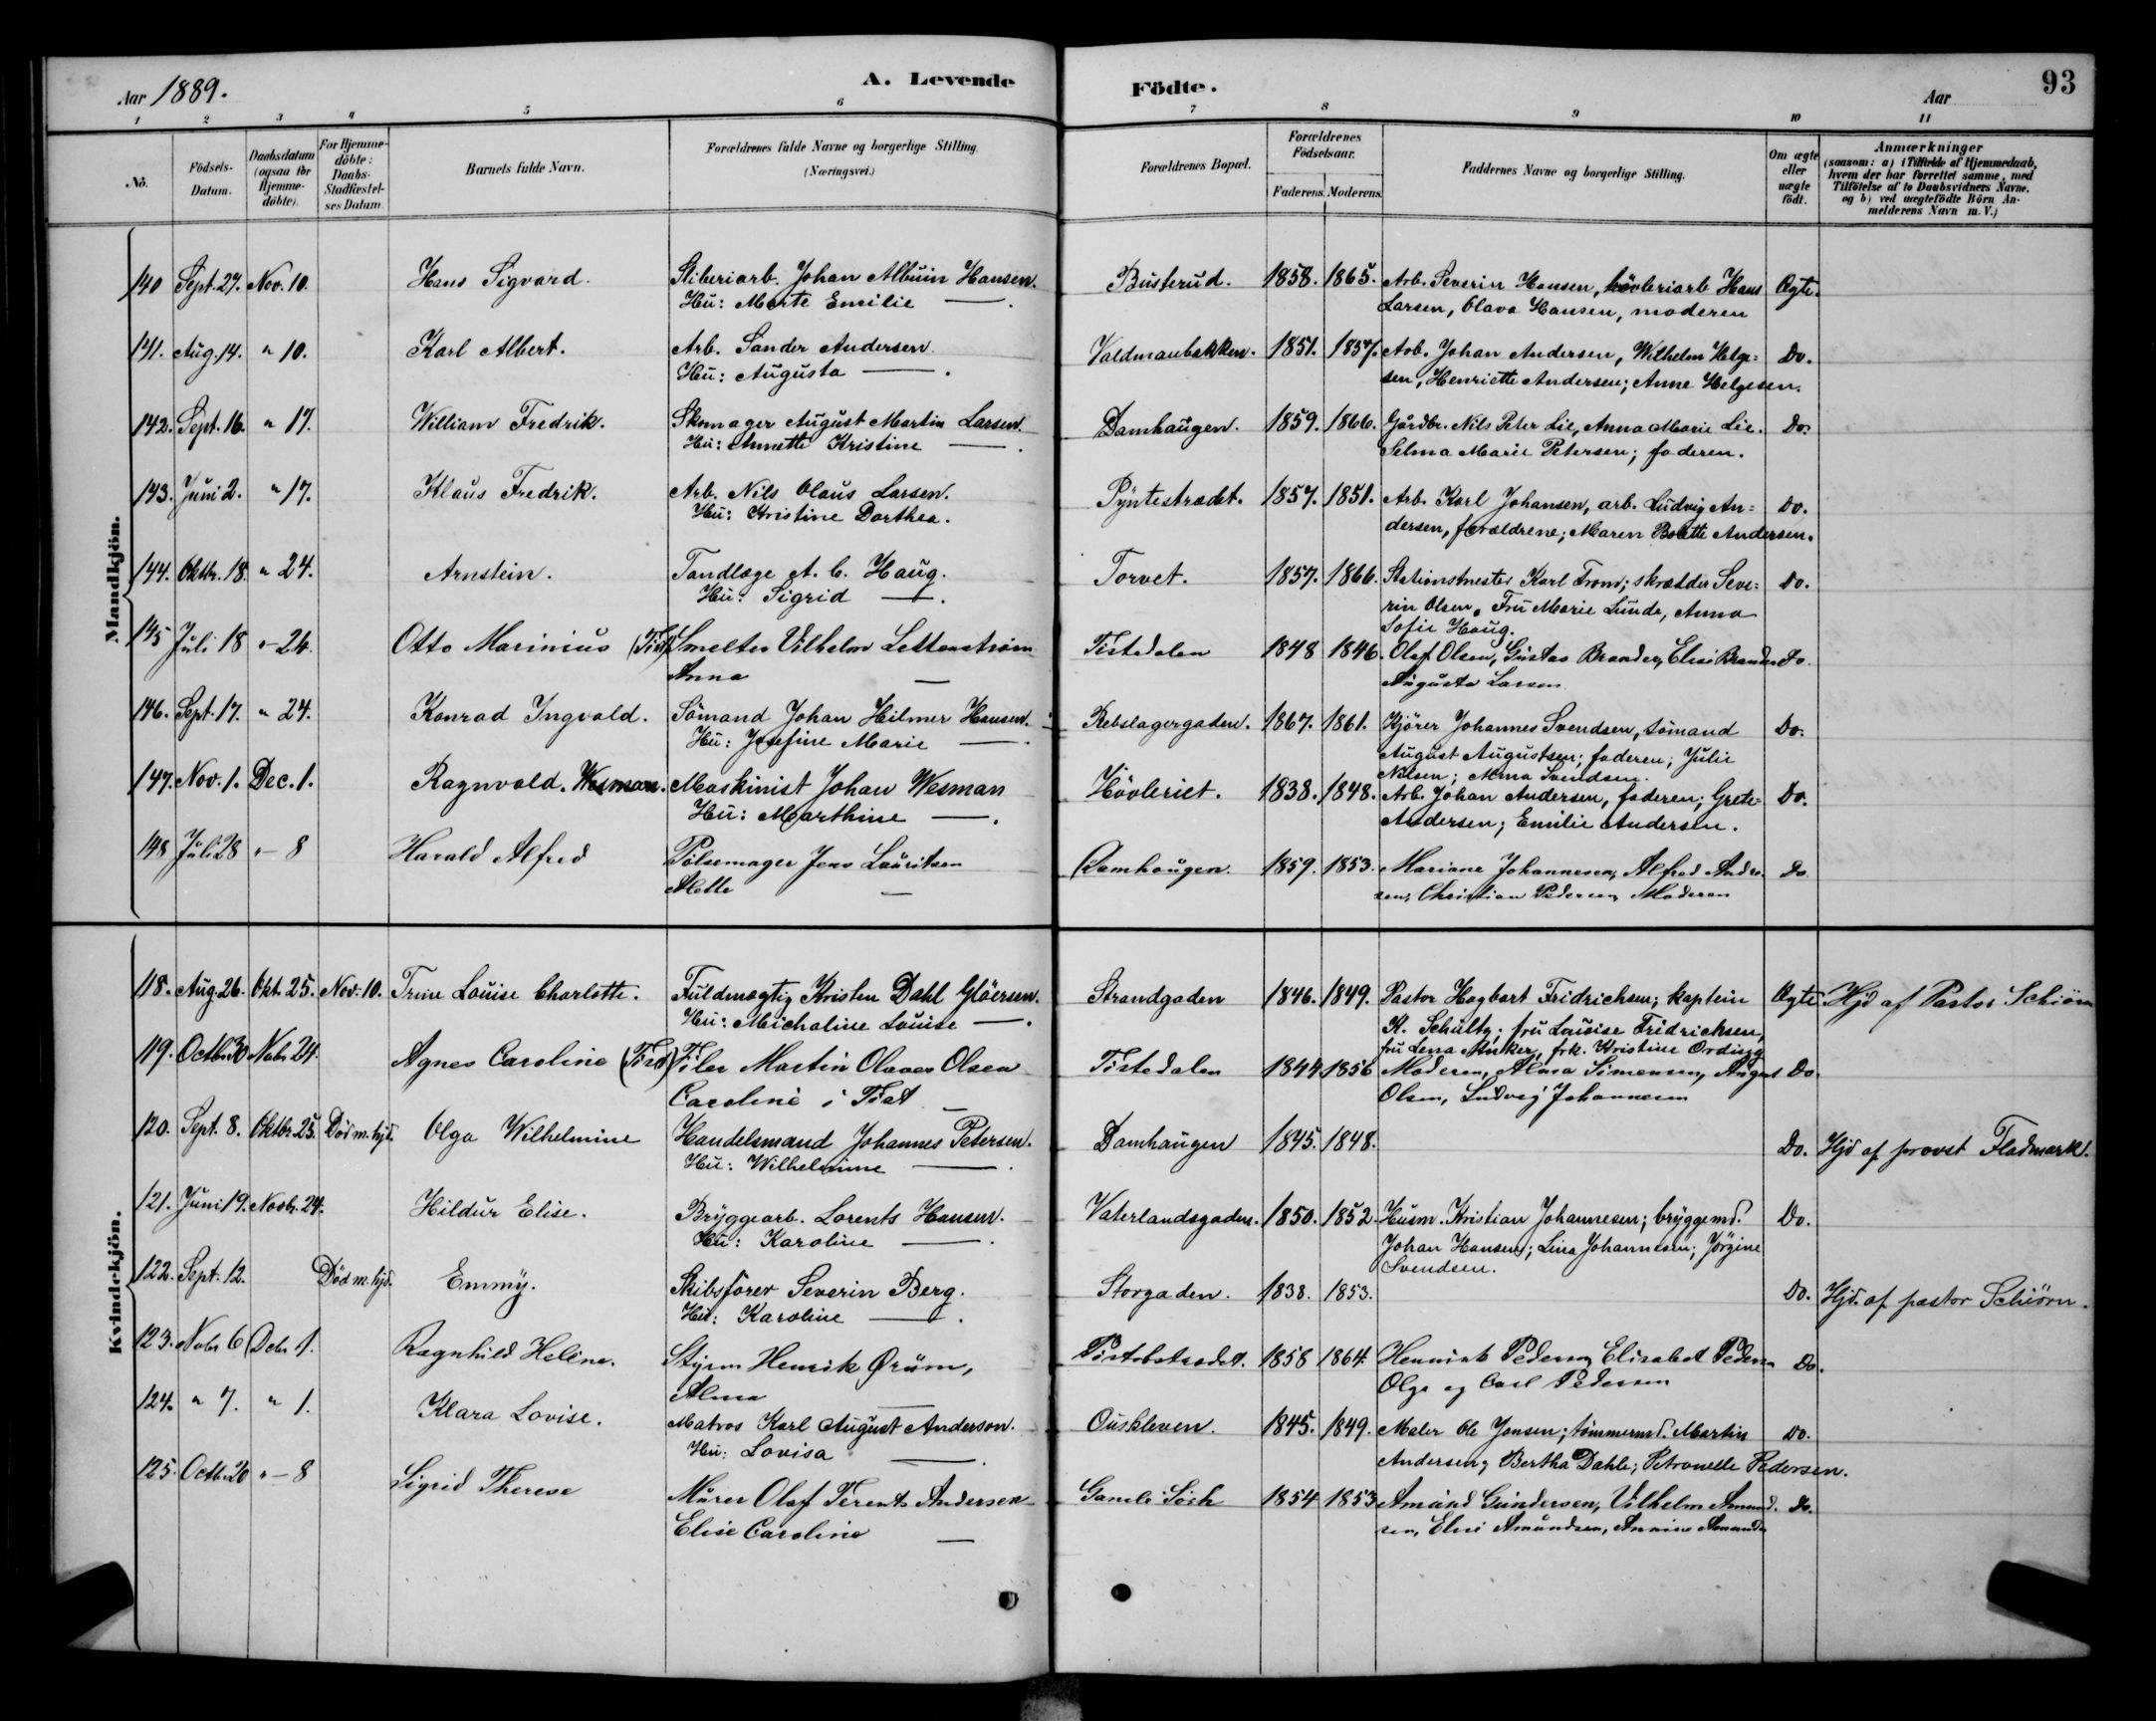 Aar 1889.
A. Levende Födte.
Aar
93
1 2 3 4 5 6 7 8 9 10 11
Nö.
Födsels-Datum.
Daabsdatum (ogsaa for Hjemme-döbte).
For Hjemme-döbte: Daabs-Stadfæstel-ses Datum.
Barnets fulde Navn.
Forældrenes fulde Navne og borgerlige Stilling. (Næringsvei.)
Forældrenes Bopæl.
Forældrenes Födselsaar.
Faderens. Moderens.
Faddernes Navne og borgerlige Stilling.
Om ægte eller uægte födt.
Anmærkninger (saasom: a) i Tilfælde af Hjemmedaab, hvem der har forrettet samme, med Tilföielse af to Daabsvidners Navne. og b) ved uægtefödte Börn An-melderens Navn m. V.)
Mandkjön.
140 Sept. 27. Nov. 10. Hans Sigvard. Sliberiarb. Johan Albuin Hansen. Busterud. 1858. 1865. Arb. Severin Hansen, hövleriarb Hans Ægte.
Hu: Marte Emilie — . Larsen, Olava Hansen, moderen
141. Aug. 14. " 10. Karl Albert. Arb. Sander Andersen. Valdmanbakken. 1851. 1857. Arb. Johan Andersen, Wilhelm Helge= Do.
Hu: Augusta — . sen, Henriette Andersen; Anne Helgesen.
142. Sept. 16. " 17. William Fredrik. Skomager August Martin Larsen. Damhaugen. 1859. 1866. Gårdbr. Nils Peter Lie, Anna Marie Lie. Do.
Hu: Annette Kristine — . Selma Marie Petersen; faderen.
143. Juni 2. " 17. Klaus Fredrik. Arb. Nils Olaus Larsen. Pyntestrædet. 1857. 1851. Arb. Karl Johansen, arb. Ludvig An= Do.
Hu: Kristine Dorthea. dersen, forældrene; Maren Bolette Andersen.
144. Oktbr. 18. " 24. Arnstein. Tandlæge A. C. Haug. Torvet. 1857. 1866. Stationsmester Karl From; skrædder Seve= Do.
Hu: Sigrid — . rin Olsen, Fru Marie Lunde, Anna
Sofie Haug.
145 Juli 18 " 24. Otto Marinius (Tist) Smelter Vilhelm Lettenstrøm Tistedalen 1848 1846. Olaf Olsen, Gustav Brandes, Elise Brandes Do.
Anna — Augusta Larsen
146. Sept. 17. " 24. Konrad Ingvald. Sömand Johan Hilmer Hansen. Rebslagergaden. 1867. 1861. Kjörer Johannes Svendsen, sömand Do.
Hu: Josefine Marie — . August Augustsen; faderen; Julie
Nilsen; Alma Svendsen.
147. Nov. 1. Dec. 1. Ragnvald. Wesman. Maskinist Johan Wesman Hövleriet. 1838. 1848. Arb. Johan Andersen, faderen; Grete Do.
Hu: Marthine — . Andersen; Emilie Andersen.
148 Juli 28 " 8 Harald Alfred Pölsemager Jens Lauritsen Damhaugen. 1859. 1853. Mariane Johannesen, Alfred Ander- Do
Alette — sen, Christian Pedersen, Moderen
Kvindekjön.
118. Aug. 26. Okt. 25. Nov. 10. Trine Louise Charlotte. Fuldmægtig Kristen Dahl Glöersen. Strandgaden 1846. 1849. Pastor Hagbart Fridrichsen; kaptein Ægte Hjd af Pastor Schiörn
Hu: Michaline Louise — . K. Schultz; fru Lauise Fridrichsen,
fru Lena Anker, frk. Kristine Ording
119. Octbr 30 Nobr 24. Agnes Caroline (Tist) Filer Martin Olaves Olsen Tistedalen 1844 1856 Moderen, Alma Simensen, August Do.
Caroline i Tist — Olsen, Ludvig Johannesen
120. Sept. 8. Oktbr. 25. Död m. hjd. Olga Wilhelmine Handelsmand Johannes Petersen. Damhaugen 1845. 1848. Do. Hjd af provst Fladmark.
Hu: Wilhelmine — .
121. Juni 19. Novbr. 24. Hildur Elise. Bryggearb. Lorents Hansen. Vaterlandsgaden. 1850. 1852. Husm. Kristian Johannesen; bryggemd. Do.
Hu: Karoline — . Johan Hansen; Lina Johannesen; Jörgine
Svendsen.
122. Sept. 12. Död m. hjd. Emmy. Skibsförer Severin Berg. Storgaden. 1838. 1853. Do. Hjd. af pastor Schiörn.
Hu: Karoline — .
123. Nobr 6 Debr 1. Ragnhild Heline. Styrm Henrik Ørum, 1858 1864. Elisabet Pedersen Do.
Alma — Olga og Carl Pedersen
124. " 7. " 1. Klara Lovise. Matros Karl August Anderson. Ouskleven. 1845. 1849. Maler Ole Jansen; tömmermd. Martin Do.
Hu: Lovisa — . Andersen; Bertha Dahle; Petronelle Pedersen.
125. Octbr. 20 " 8 Sigrid Therese Murer Olaf Terents Andersen Gamle 1854 1853 Amund Gundersen, Vilhelm Amund- Do.
Elise Caroline — sen, Elise Amundsen, Annine Amunds